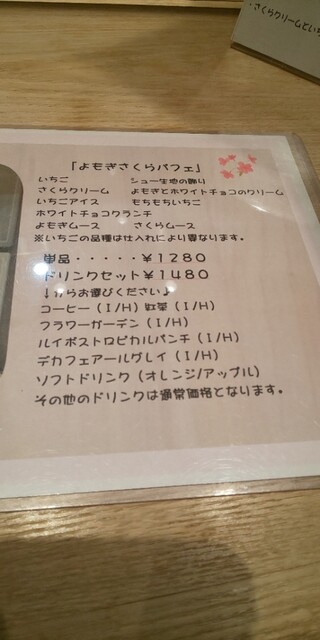 ・さくらクリームといち
「よもぎさくらパフェ」
いちご　シュー生地の飾り
さくらクリーム　よもぎとホワイトチョコのクリーム
いちごアイス　もちもちいちご
ホワイトチョコクランチ
よもぎムース　さくらムース
※いちごの品種は仕入れにより異なります。
単品・・・・・￥1280
ドリンクセット￥1480
↓からお選びください♪
コーヒー（I/H）紅茶（I/H）
フラワーガーデン（I/H）
ルイボストロピカルパンチ（I/H）
デカフェアールグレイ（I/H）
ソフトドリンク（オレンジ/アップル）
その他のドリンクは通常価格となります。